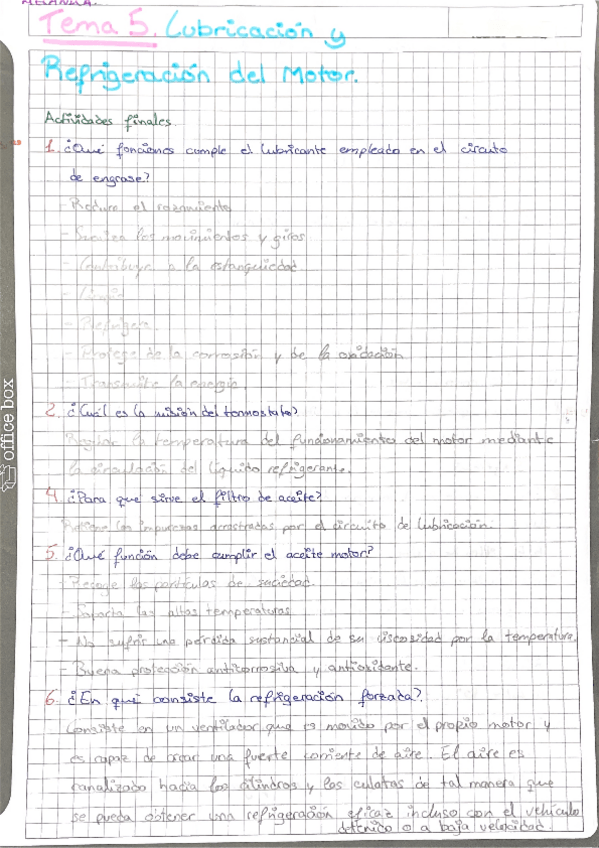 Tema 5. Lubricación y
Refrigeración del Motor.
Actividades finales.
1. ¿Qué funciones cumple el lubricante empleado en el circuito
de engrase?
- Reduce el rozamiento
- Suaviza los movimientos y giros
- Contribuye a la estanqueidad
- Limpia
- Refrigera.
- Protege de la corrosión y de la oxidación
- Transmite la energía.
2. ¿Cuál es la misión del termostato?
Regular la temperatura del funcionamiento del motor mediante
la circulación del líquido refrigerante.
4. ¿Para que sirve el filtro de aceite?
Retiene las impurezas arrastradas por el circuito de lubricación.
5. ¿Qué función debe cumplir el aceite motor?
- Recoge las partículas de suciedad.
- Soporta las altas temperaturas
- No sufrir una pérdida sustancial de su viscosidad por la temperatura.
- Buena protección anticorrosiva y antioxidante.
6. ¿En qué consiste la refrigeración forzada?
Consiste en un ventilador que es movido por el propio motor y
es capaz de crear una fuerte corriente de aire. El aire es
canalizado hacia los cilindros y las culatas de tal manera que
se pueda obtener una refrigeración eficaz incluso con el vehículo
detenido o a baja velocidad.
office box